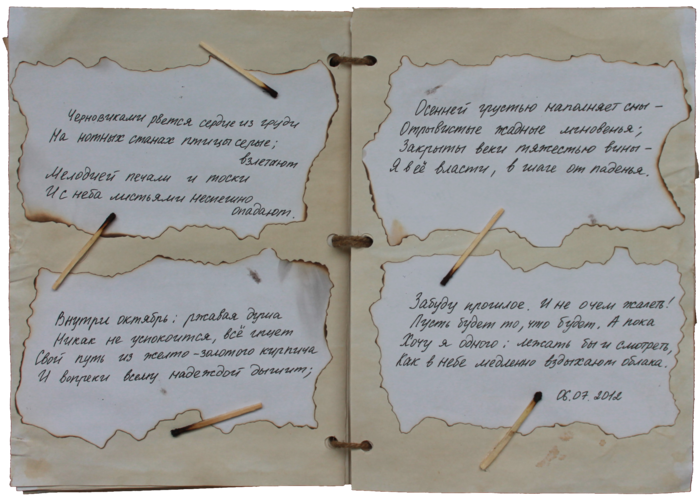 Черновиками рвется сердце из груди
На нотных станах птицы серые;
взлетают
Мелодией печали и тоски
И с неба листьями неспешно
опадают.
Внутри октябрь: ржавая душа
Никак не успокоится, всё ищет
Свой путь из желто-золотого кирпича
И вопреки всему надеждой дышит;
Осенней грустью наполняет сны –
Отрывистые жадные мгновенья;
Закрыты веки тяжестью вины –
Я в её власти, в шаге от паденья.
Забуду прошлое. И не о чем жалеть!
Пусть будет то, что будет. А пока
Хочу я одного: лежать бы и смотреть,
Как в небе медленно вздыхают облака.
06.07.2012